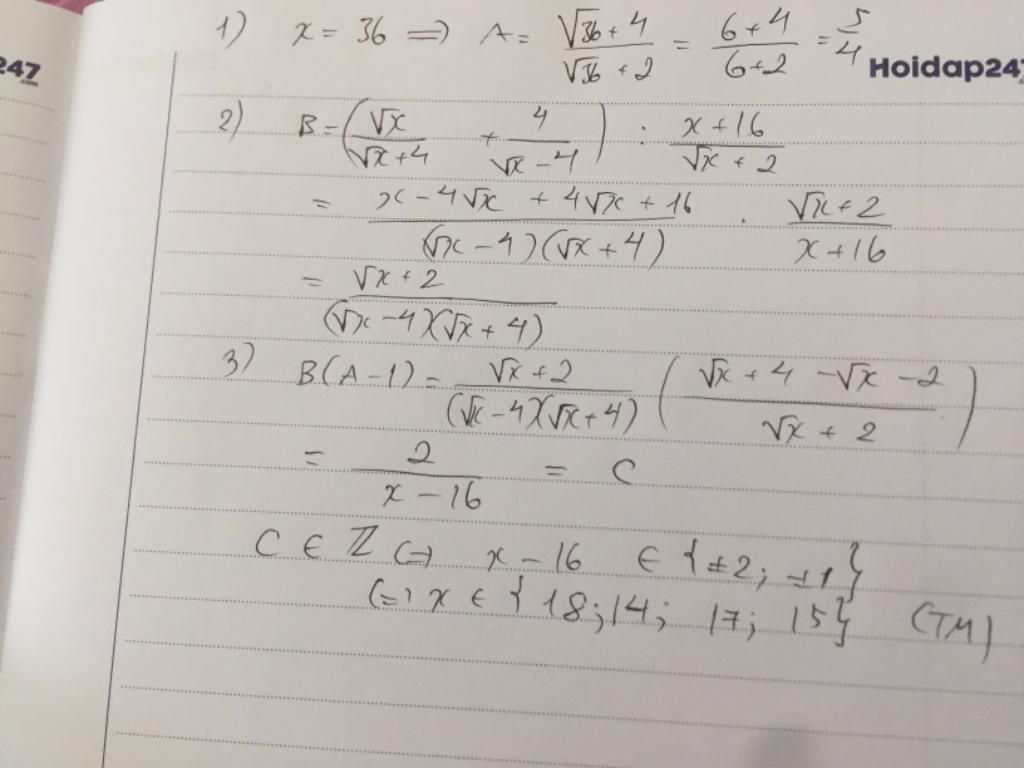 1) x = 36 => A = (√36 + 4)/(√36 + 2) = (6+4)/(6+2) = 5/4
247
.com
Hoidap247
2) B = (√x/(√x+4) + 4/(√x-4)) : (x+16)/(√x+2)
= (x - 4√x + 4√x + 16)/((√x-4)(√x+4)) . (√x+2)/(x+16)
= (√x+2)/((√x-4)(√x+4))
3) B(A-1) = (√x+2)/((√x-4)(√x+4)) ((√x+4-√x-2)/(√x+2))
= 2/(x-16) = C
C ∈ ℤ (=) x - 16 ∈ {±2; ±1}
(=) x ∈ {18; 14; 17; 15} (TM)